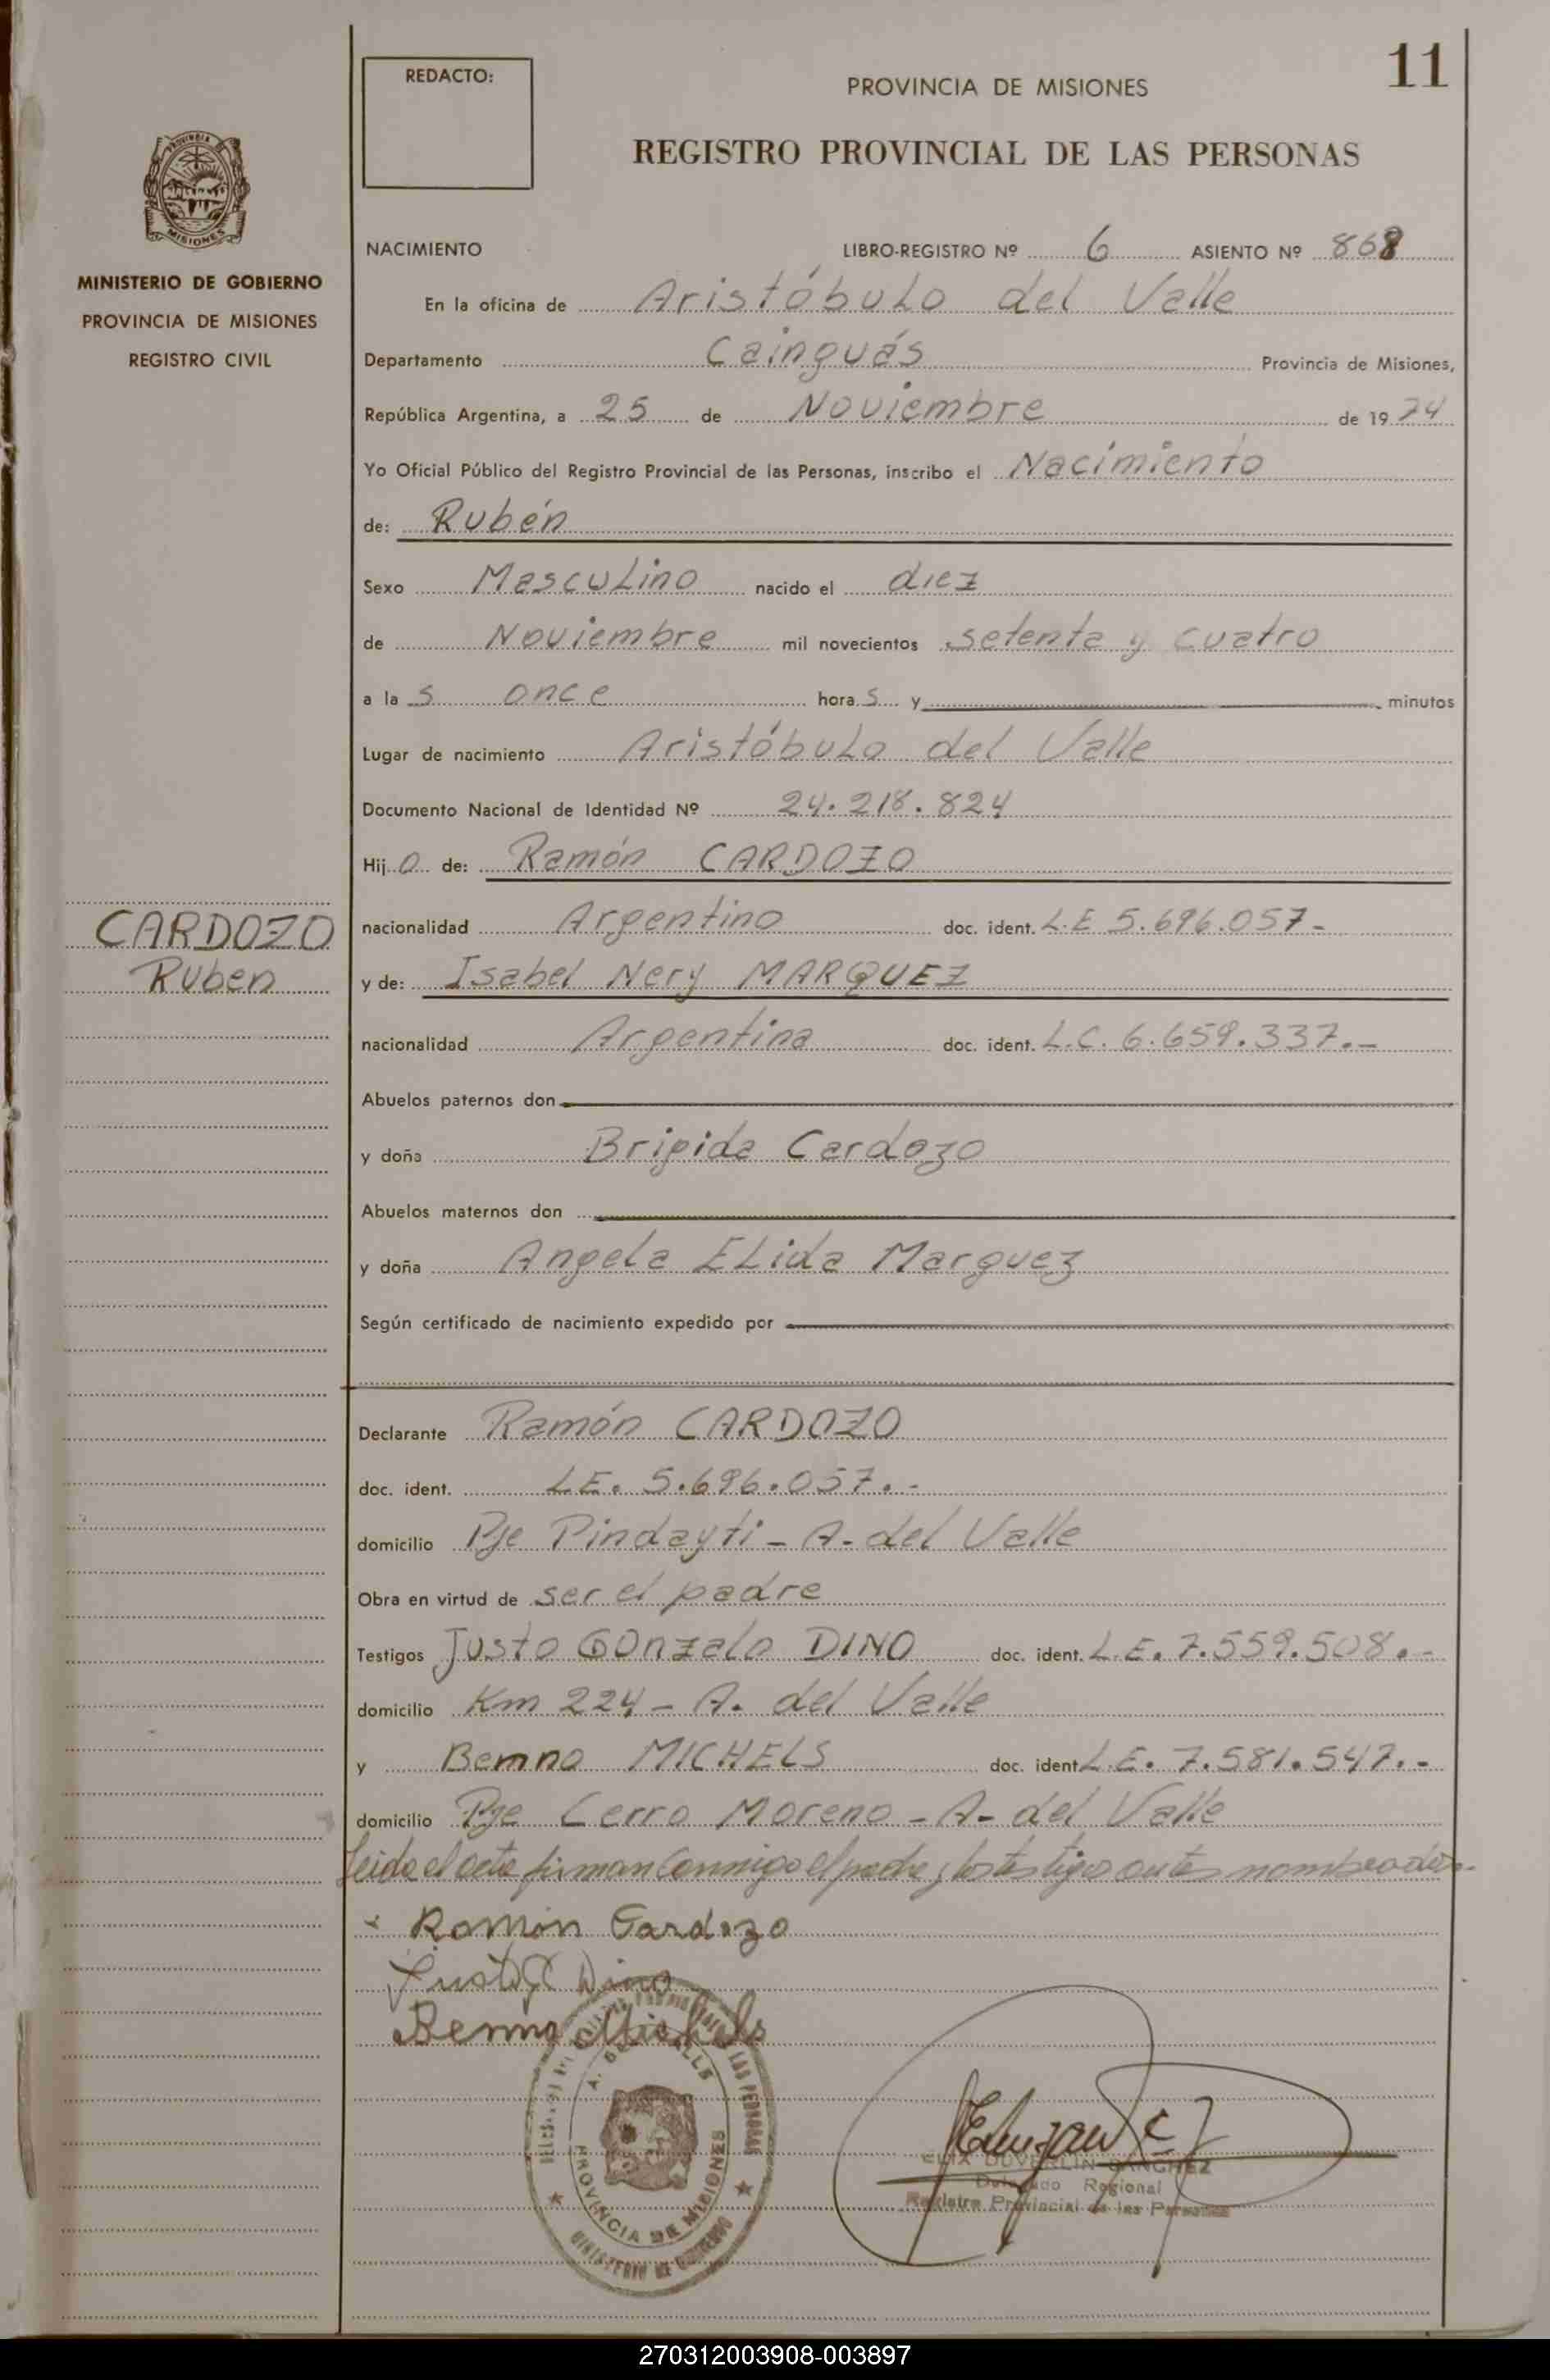 11
REDACTO:
PROVINCIA DE MISIONES
REGISTRO PROVINCIAL DE LAS PERSONAS
MISIONES
MINISTERIO DE GOBIERNO
PROVINCIA DE MISIONES
REGISTRO CIVIL
NACIMIENTO LIBRO-REGISTRO Nº 6 ASIENTO Nº 868
En la oficina de Aristóbulo del Valle
Departamento Cainguás Provincia de Misiones,
República Argentina, a 25 de Noviembre de 1974
Yo Oficial Público del Registro Provincial de las Personas, inscribo el Nacimiento
de: Rubén
Sexo Masculino nacido el diez
de Noviembre mil novecientos setenta y cuatro
a las once horas y minutos
Lugar de nacimiento Aristóbulo del Valle
Documento Nacional de Identidad Nº 24.218.824
Hijo de: Ramón CARDOZO
CARDOZO
Ruben
nacionalidad Argentino doc. ident. L.E 5.696.057-
y de: Isabel Nery MARQUEZ
nacionalidad Argentina doc. ident. L.C. 6.659.337.-
Abuelos paternos don
y doña Brigida Cardozo
Abuelos maternos don
y doña Angela Elida Marquez
Según certificado de nacimiento expedido por
Declarante Ramón CARDOZO
doc. ident. L.E. 5.696.057.-
domicilio Pje Pindayti - A. del Valle
Obra en virtud de ser el padre
Testigos Justo Gonzalo DINO doc. ident. L.E. 7.559.508.-
domicilio Km 224 - A. del Valle
y Bemno MICHELS doc. ident. L.E. 7.581.547.-
domicilio Pje Cerro Moreno - A- del Valle
Leida el acta firman conmigo el padre y los testigos antes nombrados.-
Ramón Cardozo
Justo G Dino
Benno Michels
A. DEL VALLE
LAS PERSONAS
PROVINCIA DE MISIONES
MINISTERIO DE GOBIERNO
SANCHEZ
Delegado Regional
Registro Provincial de las Personas
270312003908-003897